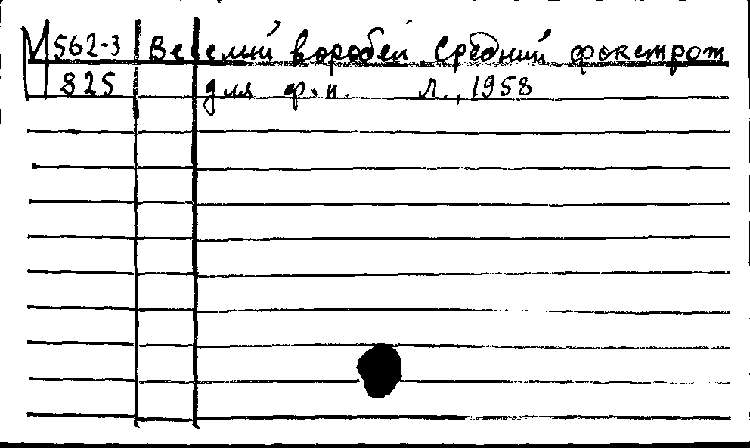 М562-3 Веселый воробей Средний фокстрот
825 для ф.п. Л., 1958